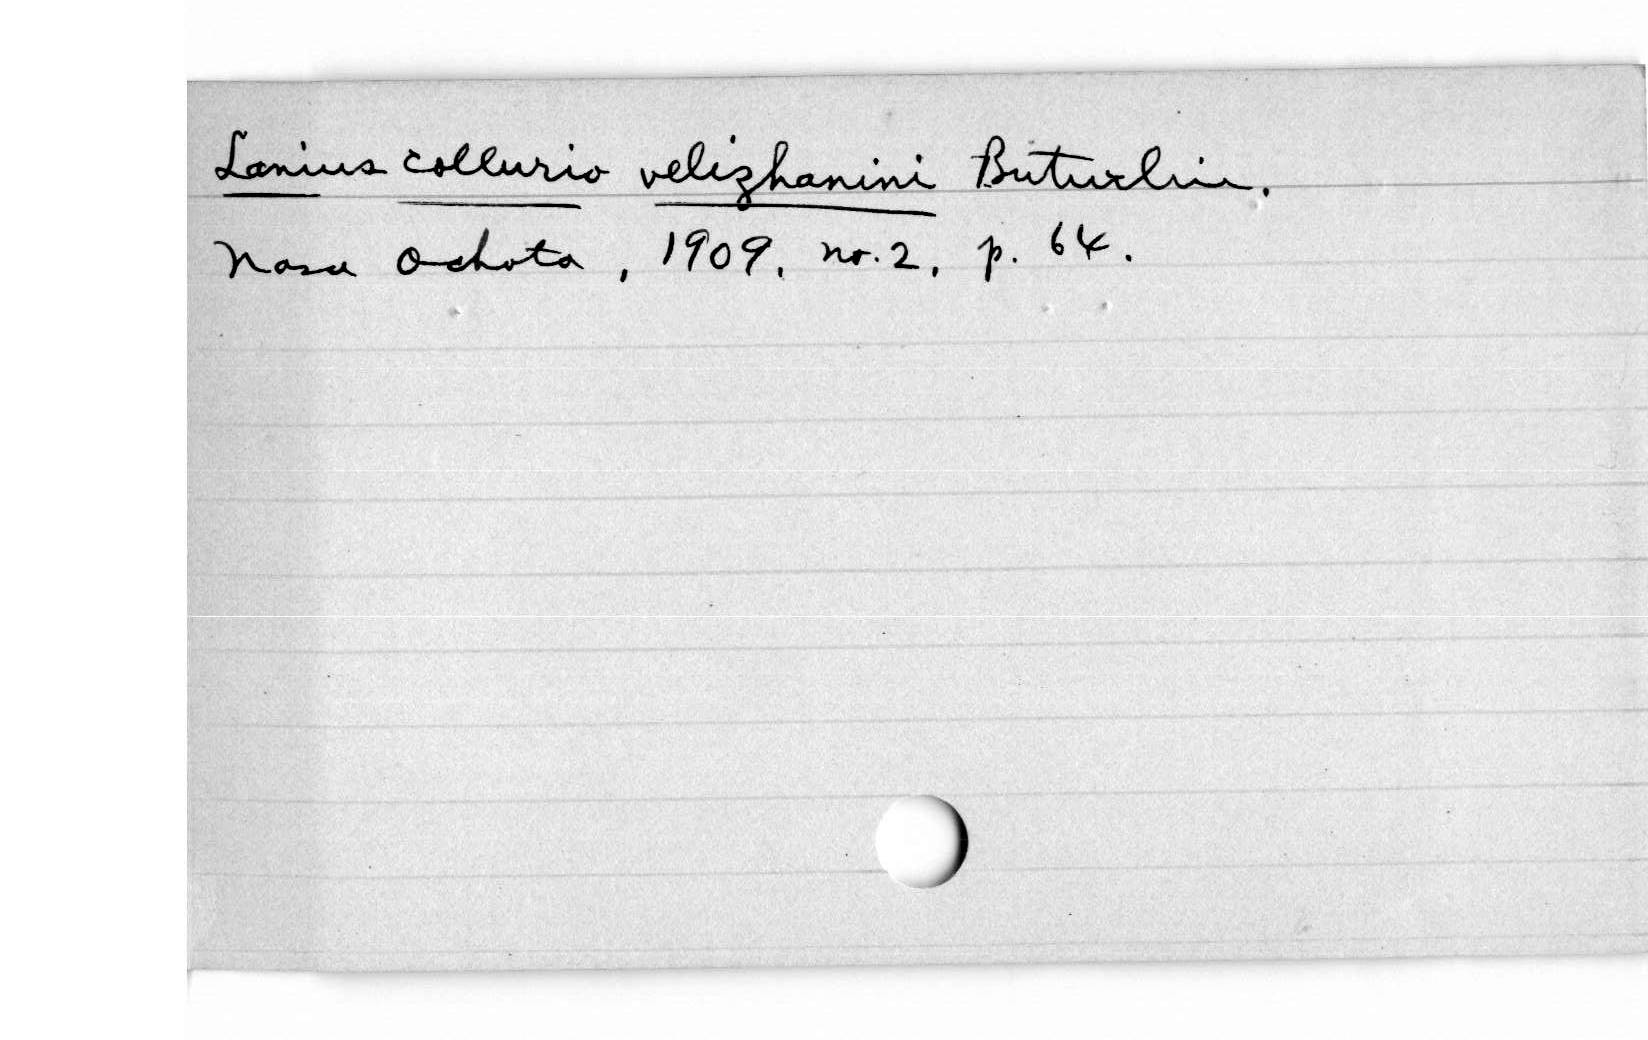 Lanius collurio velizhanini Buturlin.
Nasa Ochota, 1909, no. 2, p. 64.